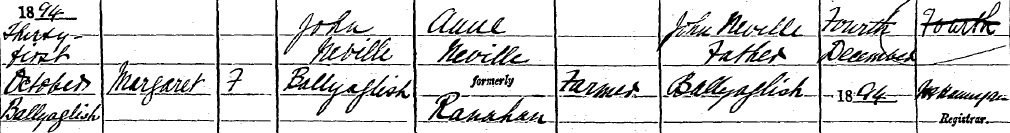 1894 John Anne John Neville Fourth Fourth
Thirty-
first Neville Neville Father December
October Margaret F Ballyaglish formerly Farmer Ballyaglish 1894
Ballyaglish Ranahan Registrar.